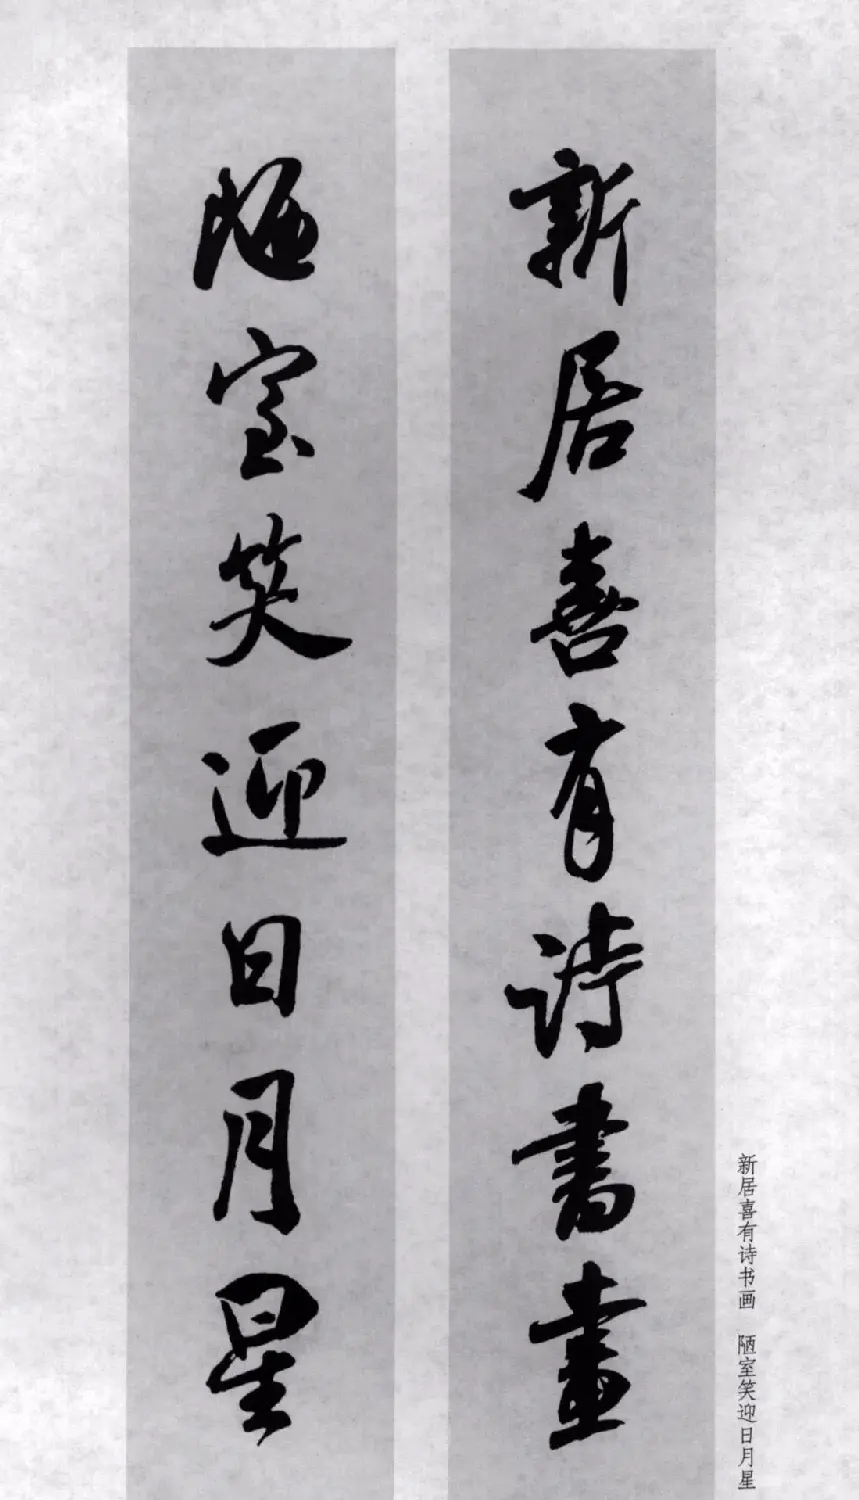 新居喜有詩書畫
陋室笑迎日月星
新居喜有诗书画 陋室笑迎日月星